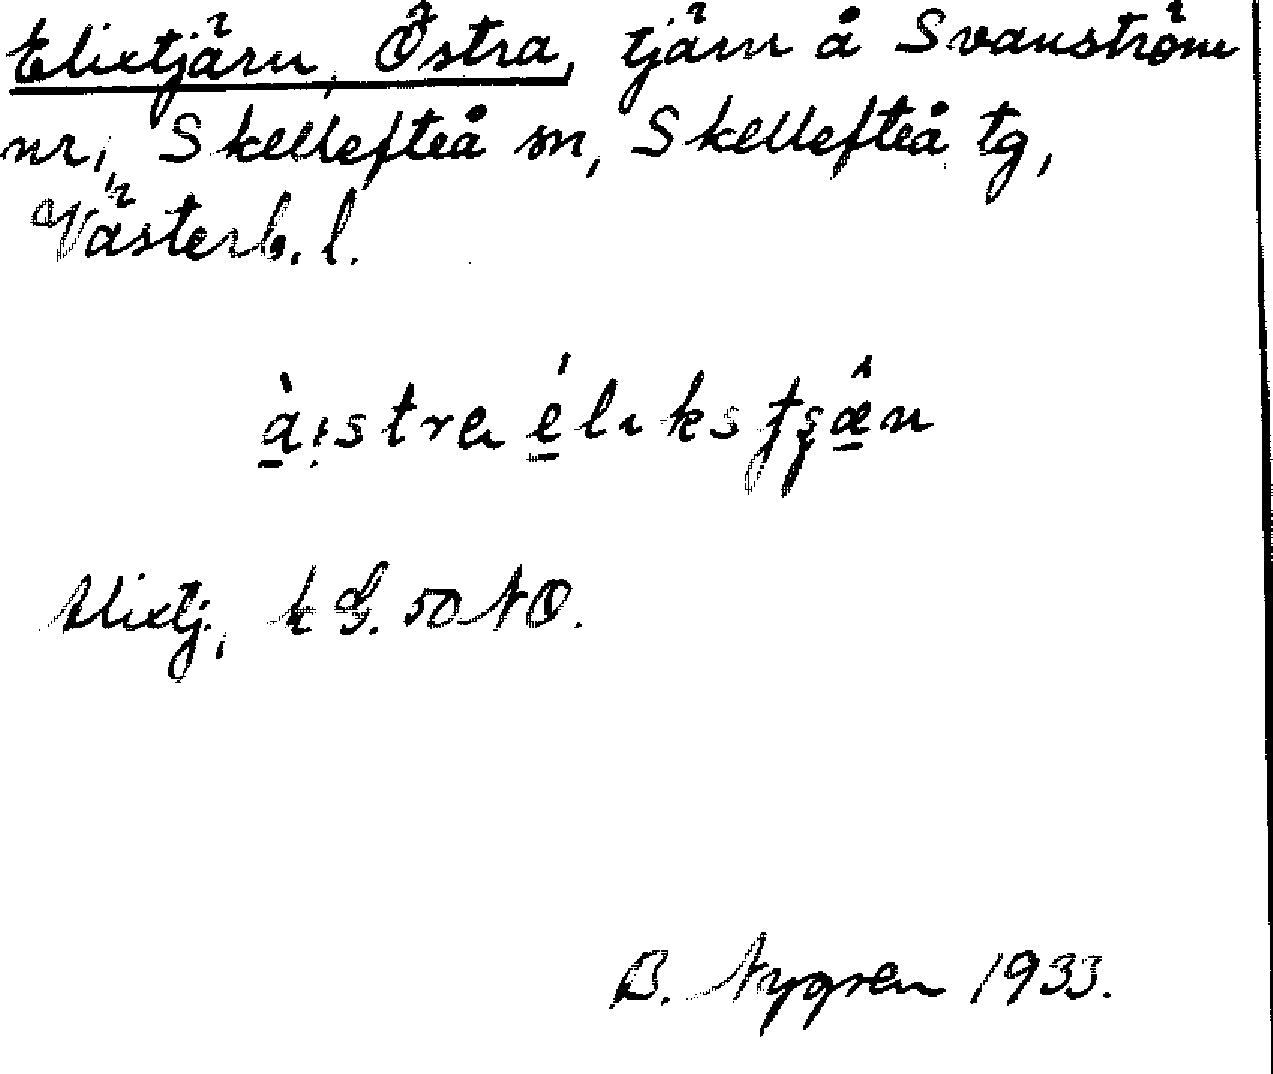 Elixtjärn, Östra, tjärn å Svanström
nr, Skellefteå sn, Skellefteå tg,
Västerb. l.
à̱:stra é̱lıks tʂæ̱̂n
Elixtj, k G. 50 NO.
B. Nygren 1933.